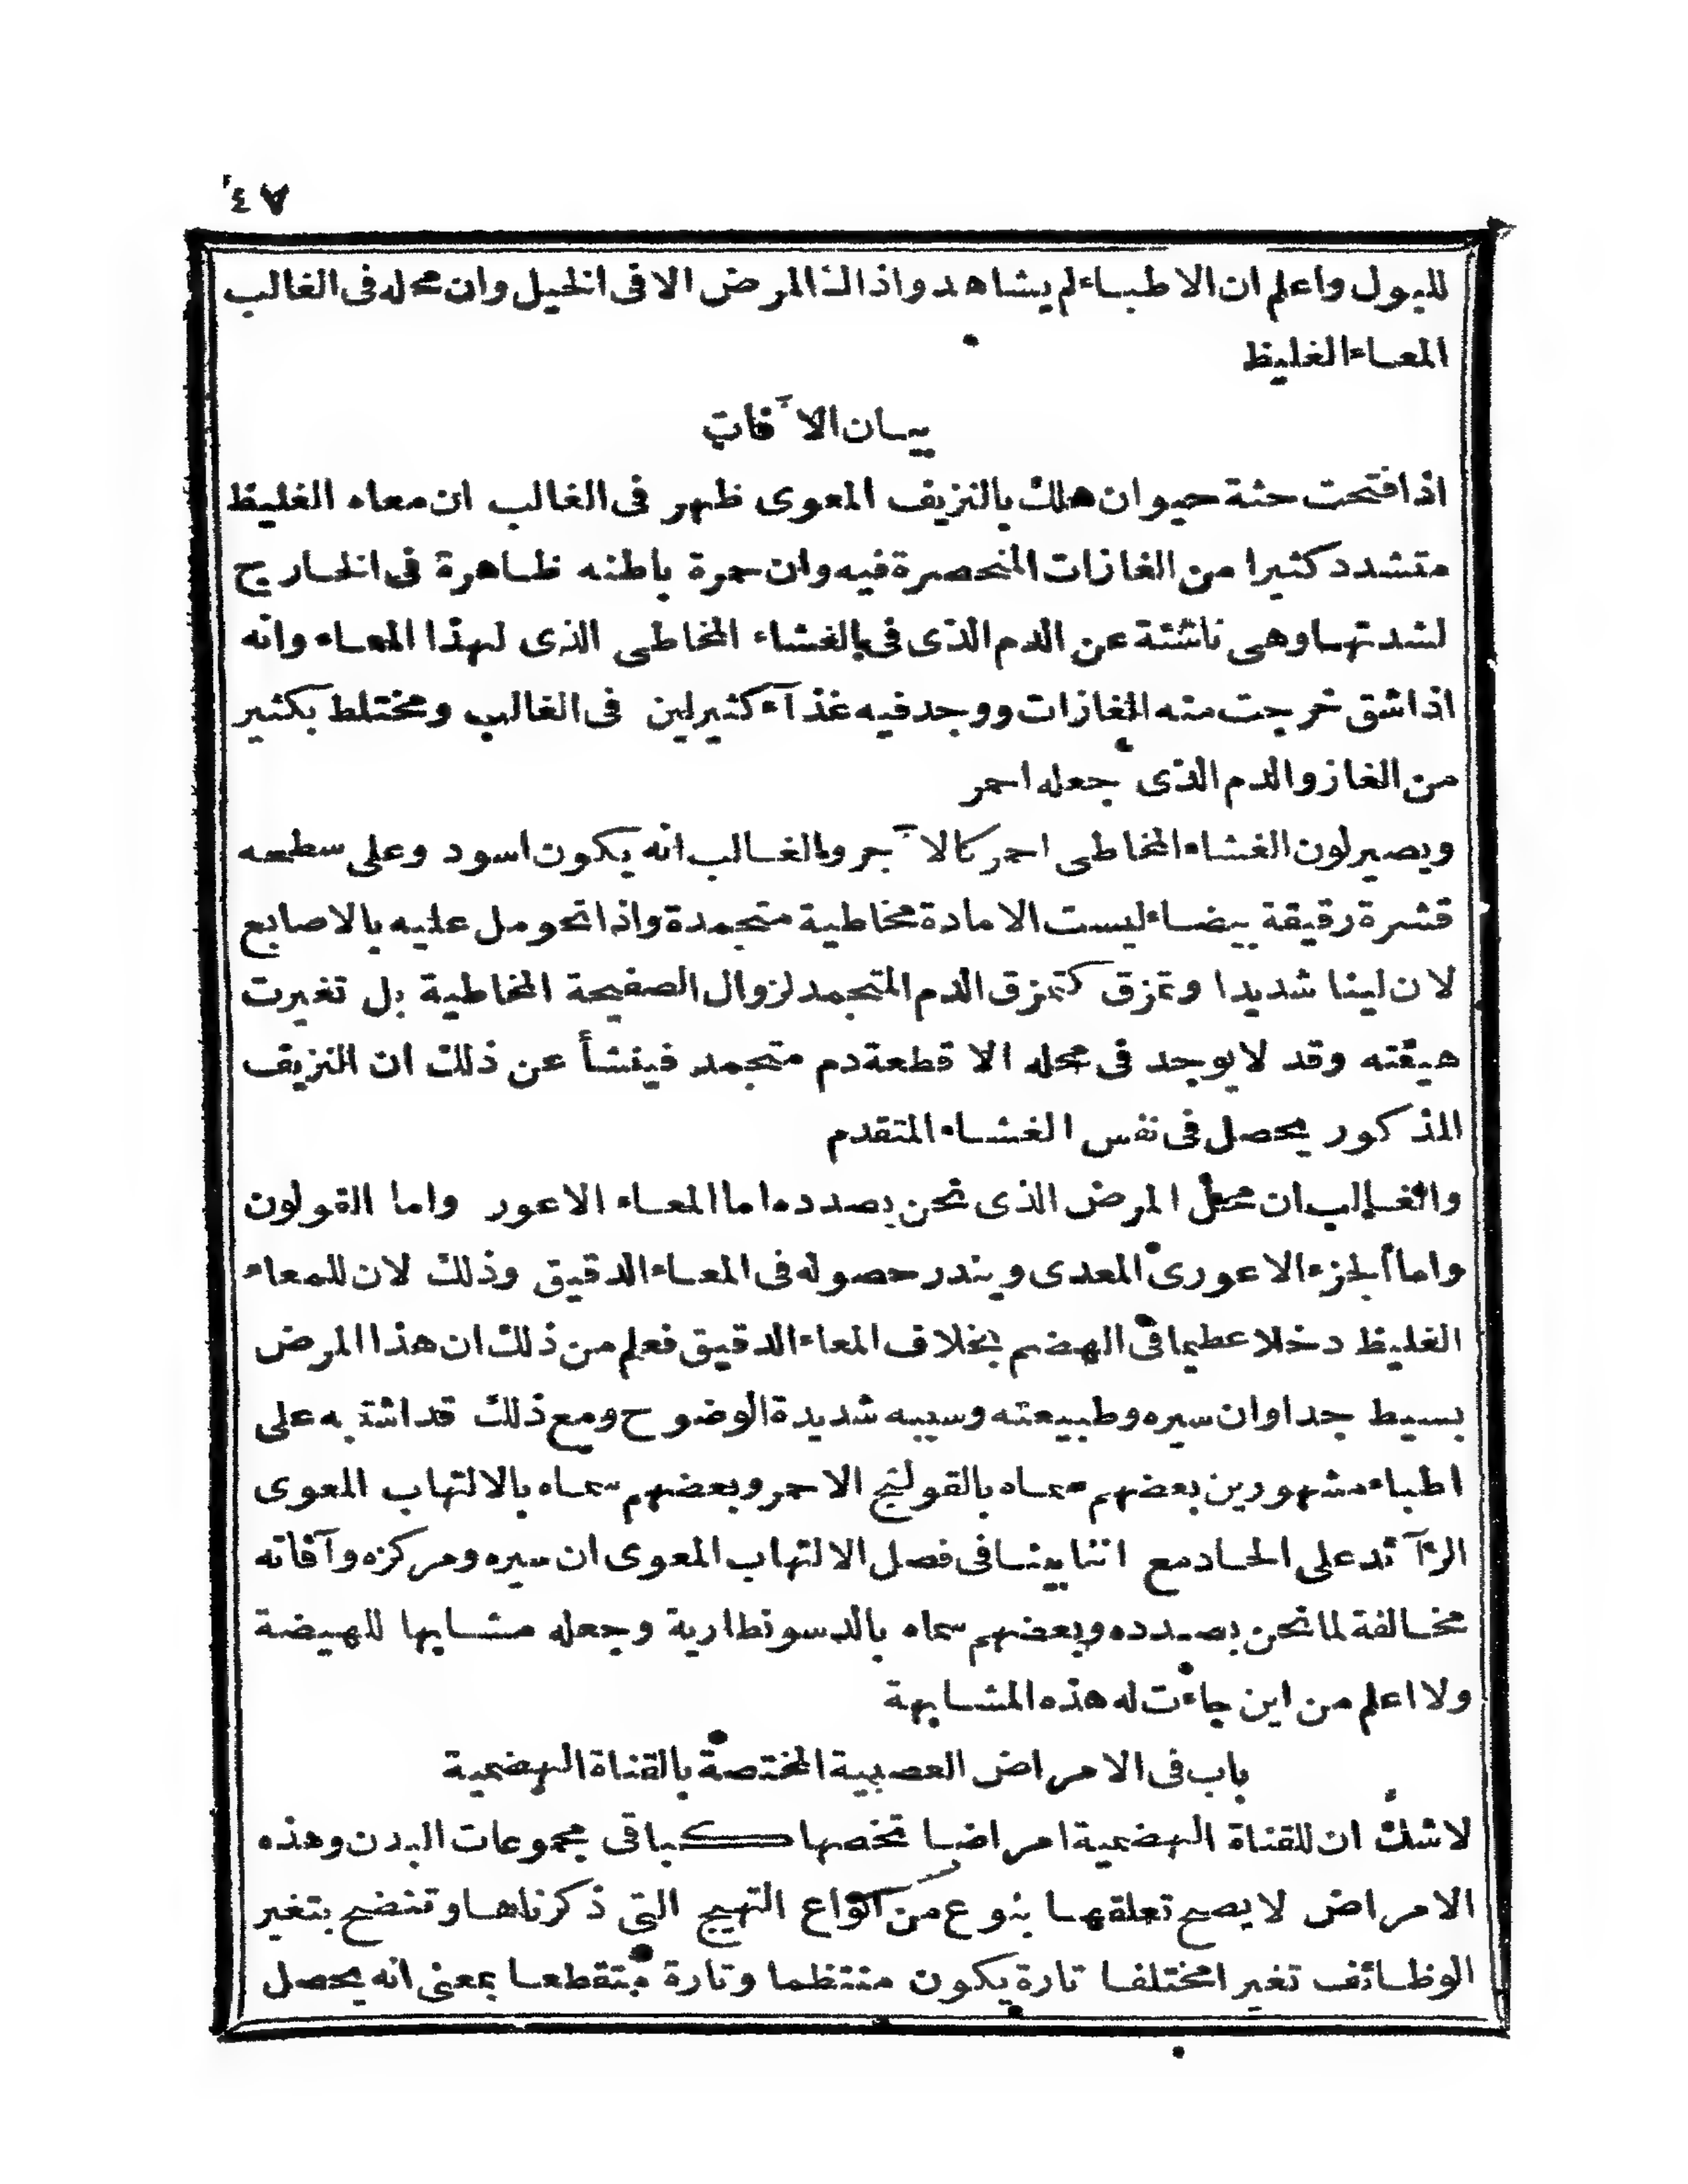 ٤٧
للبول واعلم ان الاطباء لم يشاهدوا ذاك المرض الا فى الخيل وان محله فى الغالب
المعاء الغليظ
بيان الآفات
اذا فتحت جثة حيوان هلك بالنزيف المعوى ظهر فى الغالب ان معاه الغليظ
متشدد كثيرا من الغازات المنحصرة فيه وان حمرة باطنه ظاهرة فى الخارج
لشدتها وهى ناشئة عن الدم الذى فى الغشاء المخاطى الذى لهذا المعاء وانه
اذا شق خرجت منه الغازات ووجد فيه غذآء كثير لين فى الغالب ومختلط بكثير
من الغاز والدم الذى جعله احمر
ويصير لون الغشاء المخاطى احمر كالآجر والغالب انه يكون اسود وعلى سطحه
قشرة رقيقة بيضاء ليست الا مادة مخاطية متجمدة واذا تحومل عليه بالاصابع
لان لينا شديدا وتمزق كتمزق الدم المتجمد لزوال الصفيحة المخاطية بل تغيرت
هيئته وقد لا يوجد فى محله الا قطعة دم متجمد فينشأ عن ذلك ان النزيف
المذكور يحصل فى نفس الغشاء المتقدم
والغالب ان محل المرض الذى نحن بصدده اما المعاء الاعور واما القولون
واما الجزء الاعورى المعدى ويندر حصوله فى المعاء الدقيق وذلك لان للمعاء
الغليظ دخلا عظيما فى الهضم بخلاف المعاء الدقيق فعلم من ذلك ان هذا المرض
بسيط جدا وان سيره وطبيعته وسببه شديدة الوضوح ومع ذلك قد اشتبه على
اطباء مشهورين بعضهم سماه بالقولنج الاحمر وبعضهم سماه بالالتهاب المعوى
الزآئد على الحاد مع اننا بينا فى فصل الالتهاب المعوى ان سيره ومركزه وآفاته
مخالفة لما نحن بصدده وبعضهم سماه بالدسونطارية وجعله مشابها للهيضة
ولا اعلم من اين جاءت له هذه المشابهة
باب فى الامراض العصبية المختصة بالقناة الهضمية
لا شك ان للقناة الهضمية امراضا تخصها كباقى مجموعات البدن وهذه
الامراض لا يصح تعلقها بنوع من انواع التهيج التى ذكرناها وتتضح بتغير
الوظائف تغيرا مختلفا تارة يكون منتظما وتارة متقطعا بمعنى انه يحصل